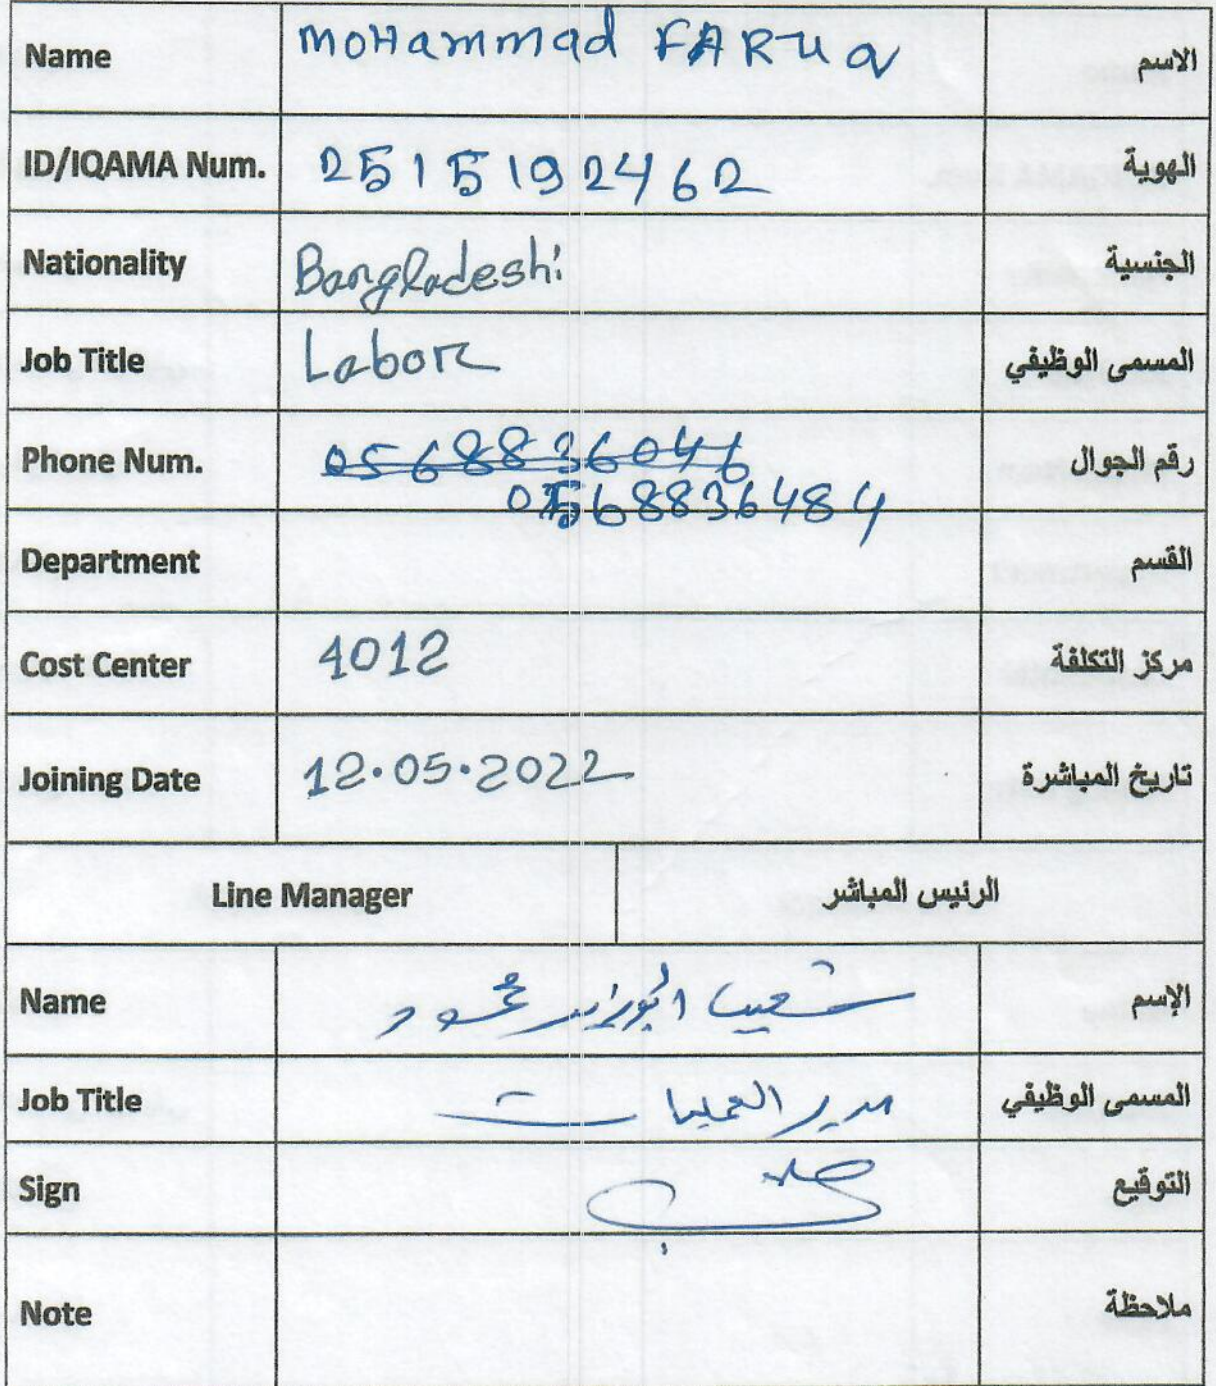 Name MOHammad FARUQ الاسم
ID/IQAMA Num. 2515192462 الهوية
Nationality Bangladeshi الجنسية
Job Title Labor المسمى الوظيفي
Phone Num. 0568836046 رقم الجوال
0568836484
Department القسم
Cost Center 4012 مركز التكلفة
Joining Date 12.05.2022 تاريخ المباشرة
Line Manager الرئيس المباشر
Name شعيب محمود الإسم
Job Title مدير العمليات المسمى الوظيفي
Sign التوقيع
Note ملاحظة